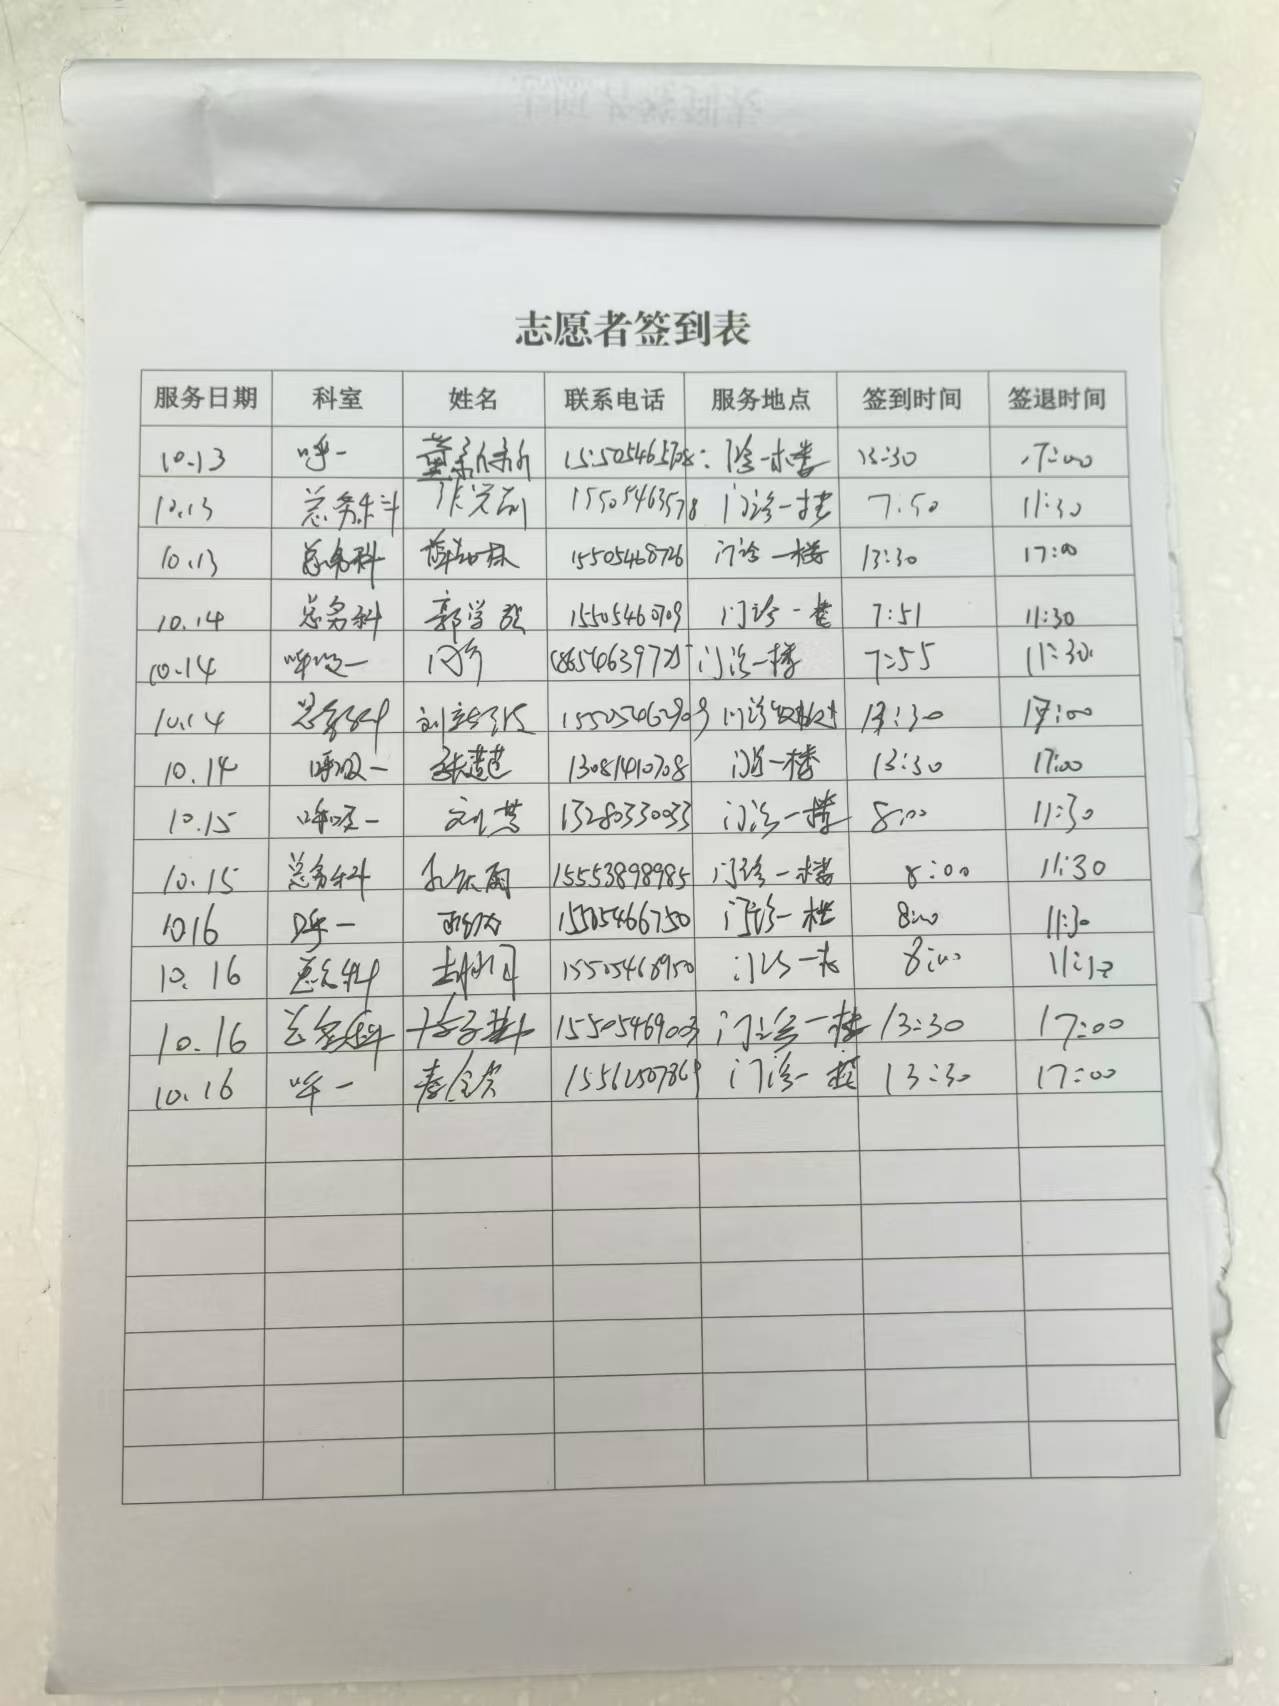 志愿者签到表
服务日期 科室 姓名 联系电话 服务地点 签到时间 签退时间
10.13 呼一 15505465708 门诊一楼 13:30 17:00
10.13 总务科 15505463578 门诊一楼 7:50 11:30
10.13 总务科 15505468726 门诊一楼 13:30 17:00
10.14 总务科 郭学 15505460709 门诊一楼 7:51 11:30
10.14 呼吸一 门诊一楼 7:55 11:30
10.14 总务科 刘 门诊 17:00
10.14 呼吸一 张 13081410708 门诊一楼 13:30 17:00
10.15 呼吸一 刘 13280330033 门诊一楼 8:00 11:30
10.15 总务科 15553898985 门诊一楼 8:00 11:30
1016 呼一 15505466750 门诊一楼 8:00 11:30
10.16 总务科 15505468950 门诊一楼 8:00
10.16 总务科 15505469003 门诊一楼 13:30 17:00
10.16 呼一 15562507869 门诊一楼 13:30 17:00